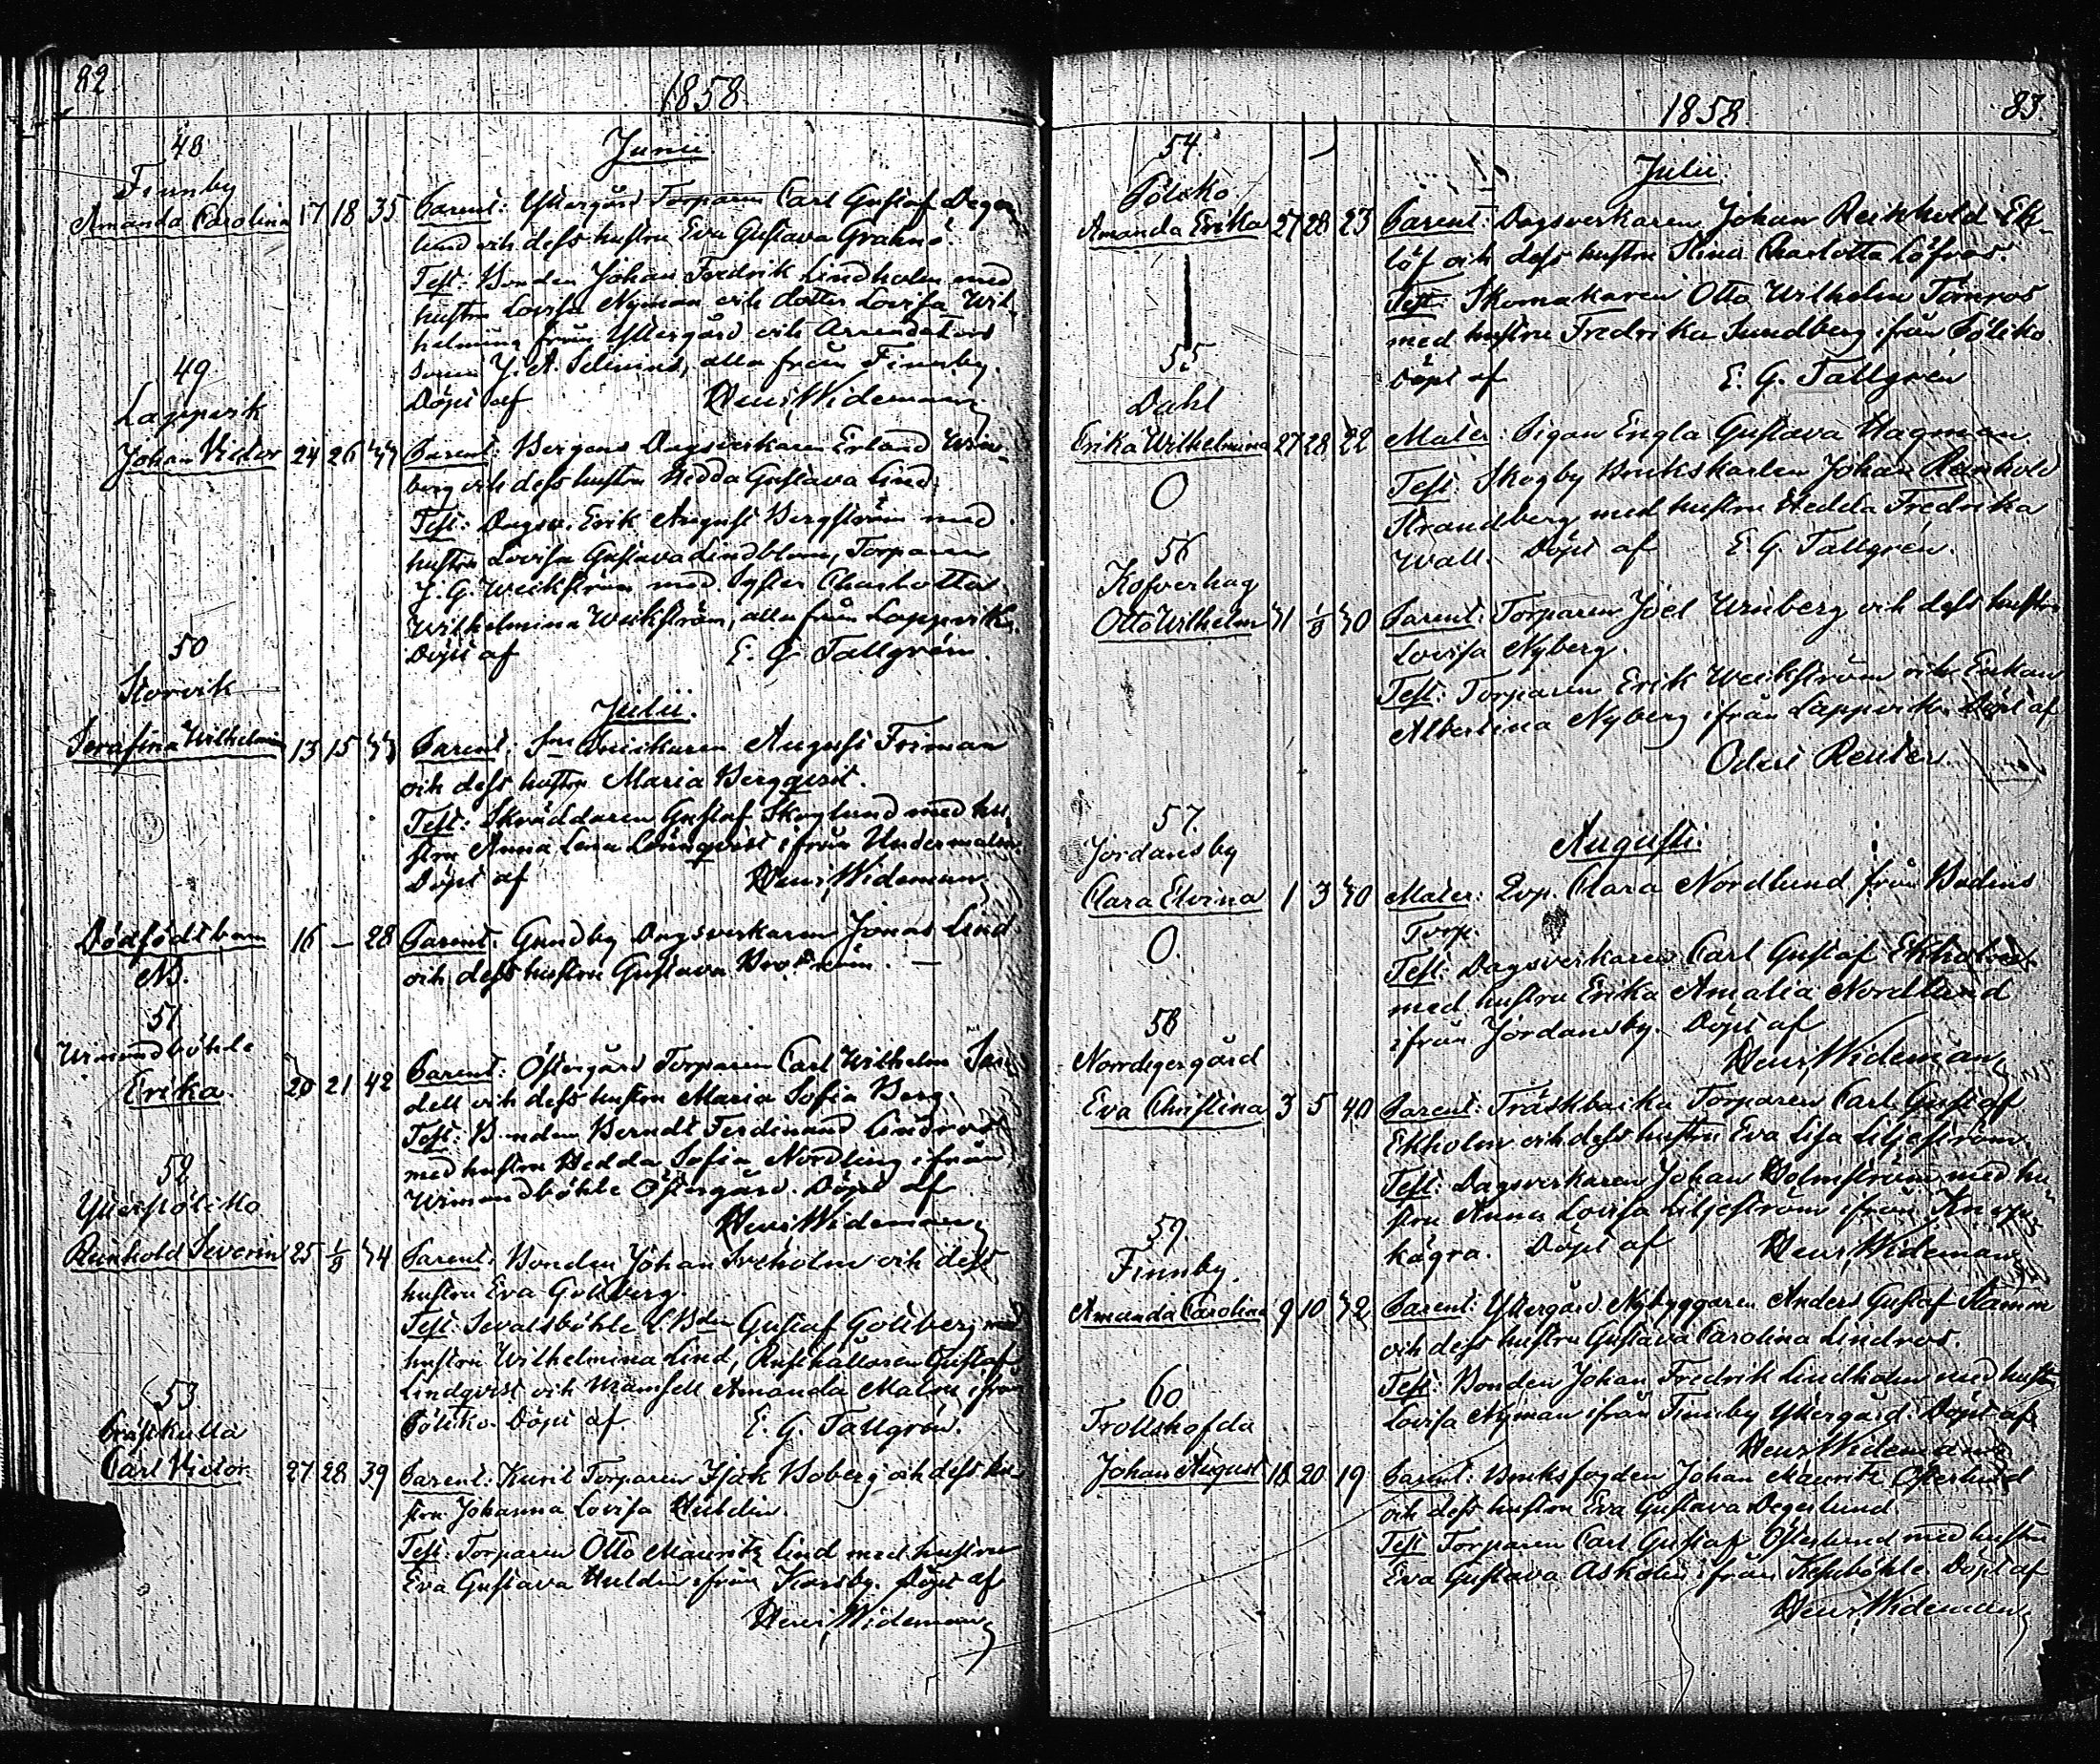 82.
1858.
Junii
48
Finnby
Amanda Carolina 17 18 35 Parent: Yttergård Torparen Carl Gustaf Deger
lund och dess hustru Eva Gustava Grahne.
Test: Bonden Johan Fredrik Lindholm med
hustru Lovisa Nyman och dotter Lovisa Wil-
helmina från Yttergård och Arrendators
sonen J. A. Selinius, alla från Finnby.
Döpt af Henr. Wideman
49
Lappvik
Johan Victor 24 26 Parent: Bergens Dagsverkaren Erland Win-
berg och dess hustru Hedda Gustava Lind.
Test: Dagsv. Erik August Bergström med
hustru Lovisa Gustava Lindblom, Torparen
J. G. Weckström med Syster Charlotta
Wilhelmina Weckström, alla från Lappvik.
Döpt af E. G. Tallgrén
Julii.
50
Storvik
Serafina Wilhelmin 13 15 Parent: August Friman
och dess hustru Maria Bergqvist.
Test: Skräddaren Gustaf Skoglund med hu-
stru Anna Lena Lönnqvist ifrån Undermalm
Döpt af Henr. Wideman
Dödfödt barn 16 — 28 Parent: Gundby Dagsverkaren Jonas Lind
NB. och dess hustru Gustava —
51
Wimundböhle
Erika 20 21 42 Parent: Östergård Torparen Carl Wilhelm Sun
dell och dess hustru Maria Sofia Berg.
Test: Bonden Berndt Ferdinand Lindros
med hustru Hedda Sofia Nordling ifrån
Wimundböhle Östergård. Döpt af
Henr. Wideman
52
Ytterpölikko
Reinhold Severin 25 1/8 34 Parent: Bonden Johan Sveholm och dess
hustru Eva Gottberg.
Test: Sevalsböhle Gustaf Gottberg med
hustru Wilhelmina Lind, Rusthållaren Gustaf
Lindqvist och Mamsell Amanda Malm ifrån
Pölikko. Döpt af E. G. Tallgrén.
53
Prästkulla
Carl Victor 27 28 39 Parent: Torparen Isak Boberg och dess hu-
stru Johanna Lovisa Huldin.
Test: Torparen Otto Mauritz Lind med hustru
Eva Gustava Huldin ifrån Karsby. Döpt af
Henr. Wideman
1858
83.
Julii
54.
Pölikko
Amanda Erika 27 28 23 Parent: Dagsverkaren Johan Reinhold Ek-
löf och dess hustru Stina Charlotta Löfros.
Test: Skomakaren Otto Wilhelm Törnros
med hustru Fredrika Sundberg ifrån Pölikko.
Döpt af E. G. Tallgrén
55
Dahl
Erika Wilhelmina 27 28 22 Mater: Pigan Engla Gustava Hagman
O Test: Skogby Brukskarlen Johan Reinhold
Strandberg med hustru Hedda Fredrika
Wall. Döpt af E. G. Tallgrén.
56
Kofverhag
Otto Wilhelm 31 1/8 30 Parent: Torparen Joel Winberg och dess hustru
Lovisa Nyberg.
Test: Torparen Erik Weckström och Enkan
Albertina Nyberg ifrån Lappvik. Döpt af
Odert Reuter.
Augusti.
57.
Jordansby
Clara Elvina 1 3 30 Mater: Qvp. Clara Nordlund från Bodins
Torp.
O. Test: Dagsverkaren Carl Gustaf Ekholm
med hustru Erika Amalia Nordlund
ifrån Jordansby. Döpt af
Henr. Wideman
58
Norrdegergård
Eva Christina 3 5 40 Parent: Träskbacka Torparen Carl Gustaf
Ekholm och dess hustru Eva Lisa Liljeström.
Test: Dagsverkaren Johan Holmström med hu-
stru Anna Lovisa Liljeström ifrån Knap
kägra. Döpt af Henr. Wideman
59
Finnby.
Amanda Carolina 9 10 32 Parent: Yttergård Nybyggaren Anders Gustaf Stamm
och dess hustru Gustava Carolina Lindros.
Test: Bonden Johan Fredrik Lindholm med hustru
Lovisa Nyman ifrån Finnby Yttergård. Döpt af
Henr. Wideman
60
Trollshofda
Johan August 18 20 19 Parent: Bruksfogden Johan Mauritz Österlund
och dess hustru Eva Gustava Degerlund.
Test Torparen Carl Gustaf Österlund med hustru
Eva Gustava Askolin ifrån Döpt af
Henr. Wideman